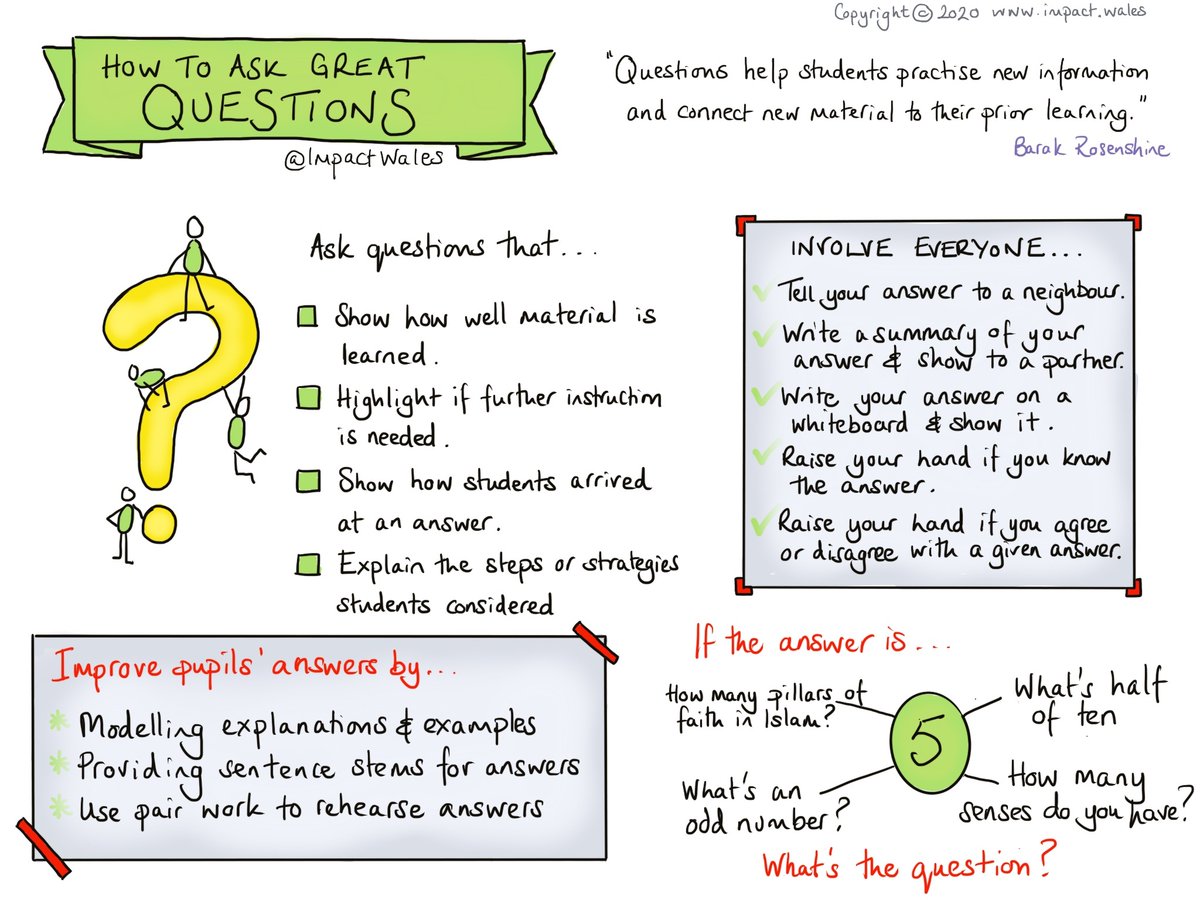 Copyright © 2020 www.impact.wales
HOW TO ASK GREAT
QUESTIONS
@ImpactWales
"Questions help students practise new information
and connect new material to their prior learning."
Barak Rosenshine
Ask questions that...
Show how well material is
learned.
Highlight if further instruction
is needed.
Show how students arrived
at an answer.
Explain the steps or strategies
students considered
INVOLVE EVERYONE...
Tell your answer to a neighbour.
Write a summary of your
answer & show to a partner.
Write your answer on a
whiteboard & show it.
Raise your hand if you know
the answer.
Raise your hand if you agree
or disagree with a given answer.
Improve pupils' answers by...
Modelling explanations & examples
Providing sentence stems for answers
Use pair work to rehearse answers
If the answer is...
How many pillars of
faith in Islam?
What's half
of ten
5
What's an
odd number?
How many
senses do you have?
What's the question?